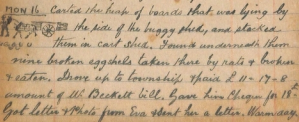 MON 16. Carted the heap of boards that was lying by
the side of the buggy shed, and stacked
them in cart shed. Found underneath them
nine broken eggshels taken there by rats & broken
& eaten. Drove up to township & paid £ 11-17-8
amount of Mr Beckett bill. Gave him Cheque for 18th
Got letter & Photo from Eva & sent her a letter. Warm day